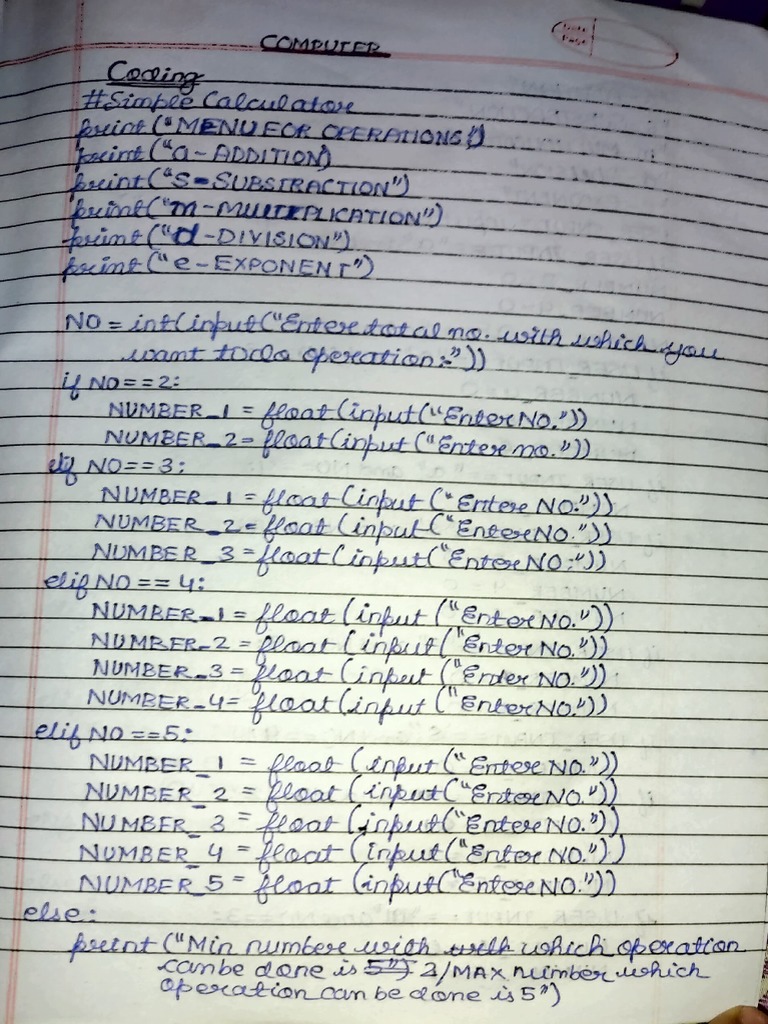 COMPUTER
Date
Page
Coding
#Simple Calculator
print("MENU FOR OPERATIONS")
print("a-ADDITION)
print("S-SUBSTRACTION")
print("m-MULTIPLICATION")
print("d-DIVISION")
print("e-EXPONENT")
NO = int(input("Enter total no. with which you
want to do operation:"))
if NO==2:
NUMBER_1 = float(input("Enter NO."))
NUMBER_2= float(input("Enter no."))
elif NO==3:
NUMBER_1 = float(input("Enter NO."))
NUMBER_2= float(input("Enter NO."))
NUMBER_3 = float(input("Enter NO:"))
elif NO == 4:
NUMBER_1 = float(input("Enter NO."))
NUMBER_2 = float(input("Enter NO."))
NUMBER_3 = float(input("Enter NO."))
NUMBER_4= float(input("Enter NO."))
elif NO ==5:
NUMBER_1 = float(input("Enter NO."))
NUMBER_2 = float(input("Enter NO."))
NUMBER_3 = float(input("Enter NO."))
NUMBER_4 = float(input("Enter NO."))
NUMBER_5 = float(input("Enter NO."))
else:
print("Min number with with which operation
can be done is 5") 2/MAX number which
operation can be done is 5")